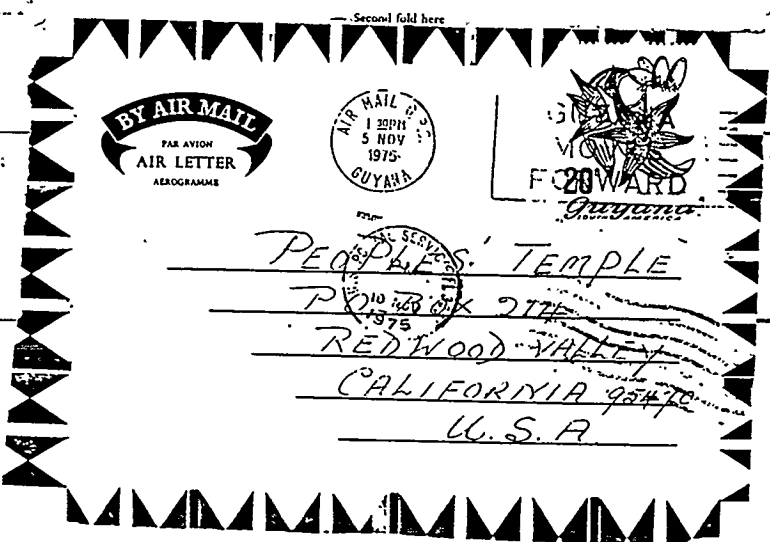 Second fold here
BY AIR MAIL
PAR AVION
AIR LETTER
AEROGRAMME
AIR MAIL G.P.O.
1 30PM
5 NOV
1975
GUYANA
FORWARD
20
Guyana
SOUTH AMERICA
SERVICE
10
1975
PEOPLE'S TEMPLE
P.O. BOX
REDWOOD VALLEY
CALIFORNIA 95470
U.S.A.